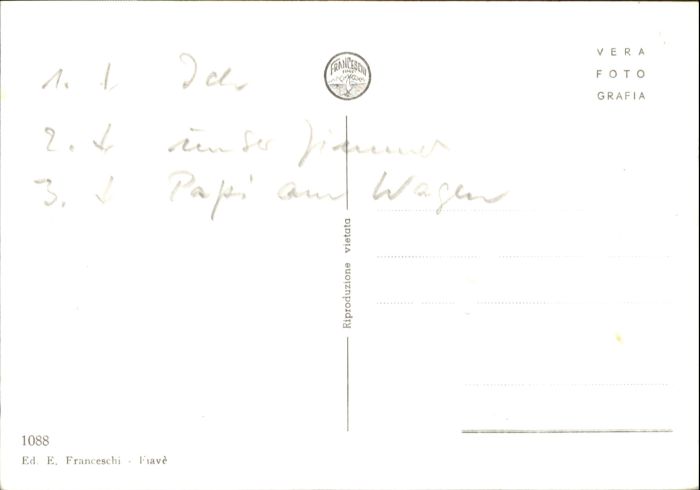 1. ↓ Ich
2. ↓ unser Zimmer
3. ↓ Papi am Wagen
FRANCESCHI
VERA
FOTO
GRAFIA
Riproduzione vietata
1088
Ed. E. Franceschi - Fiavè